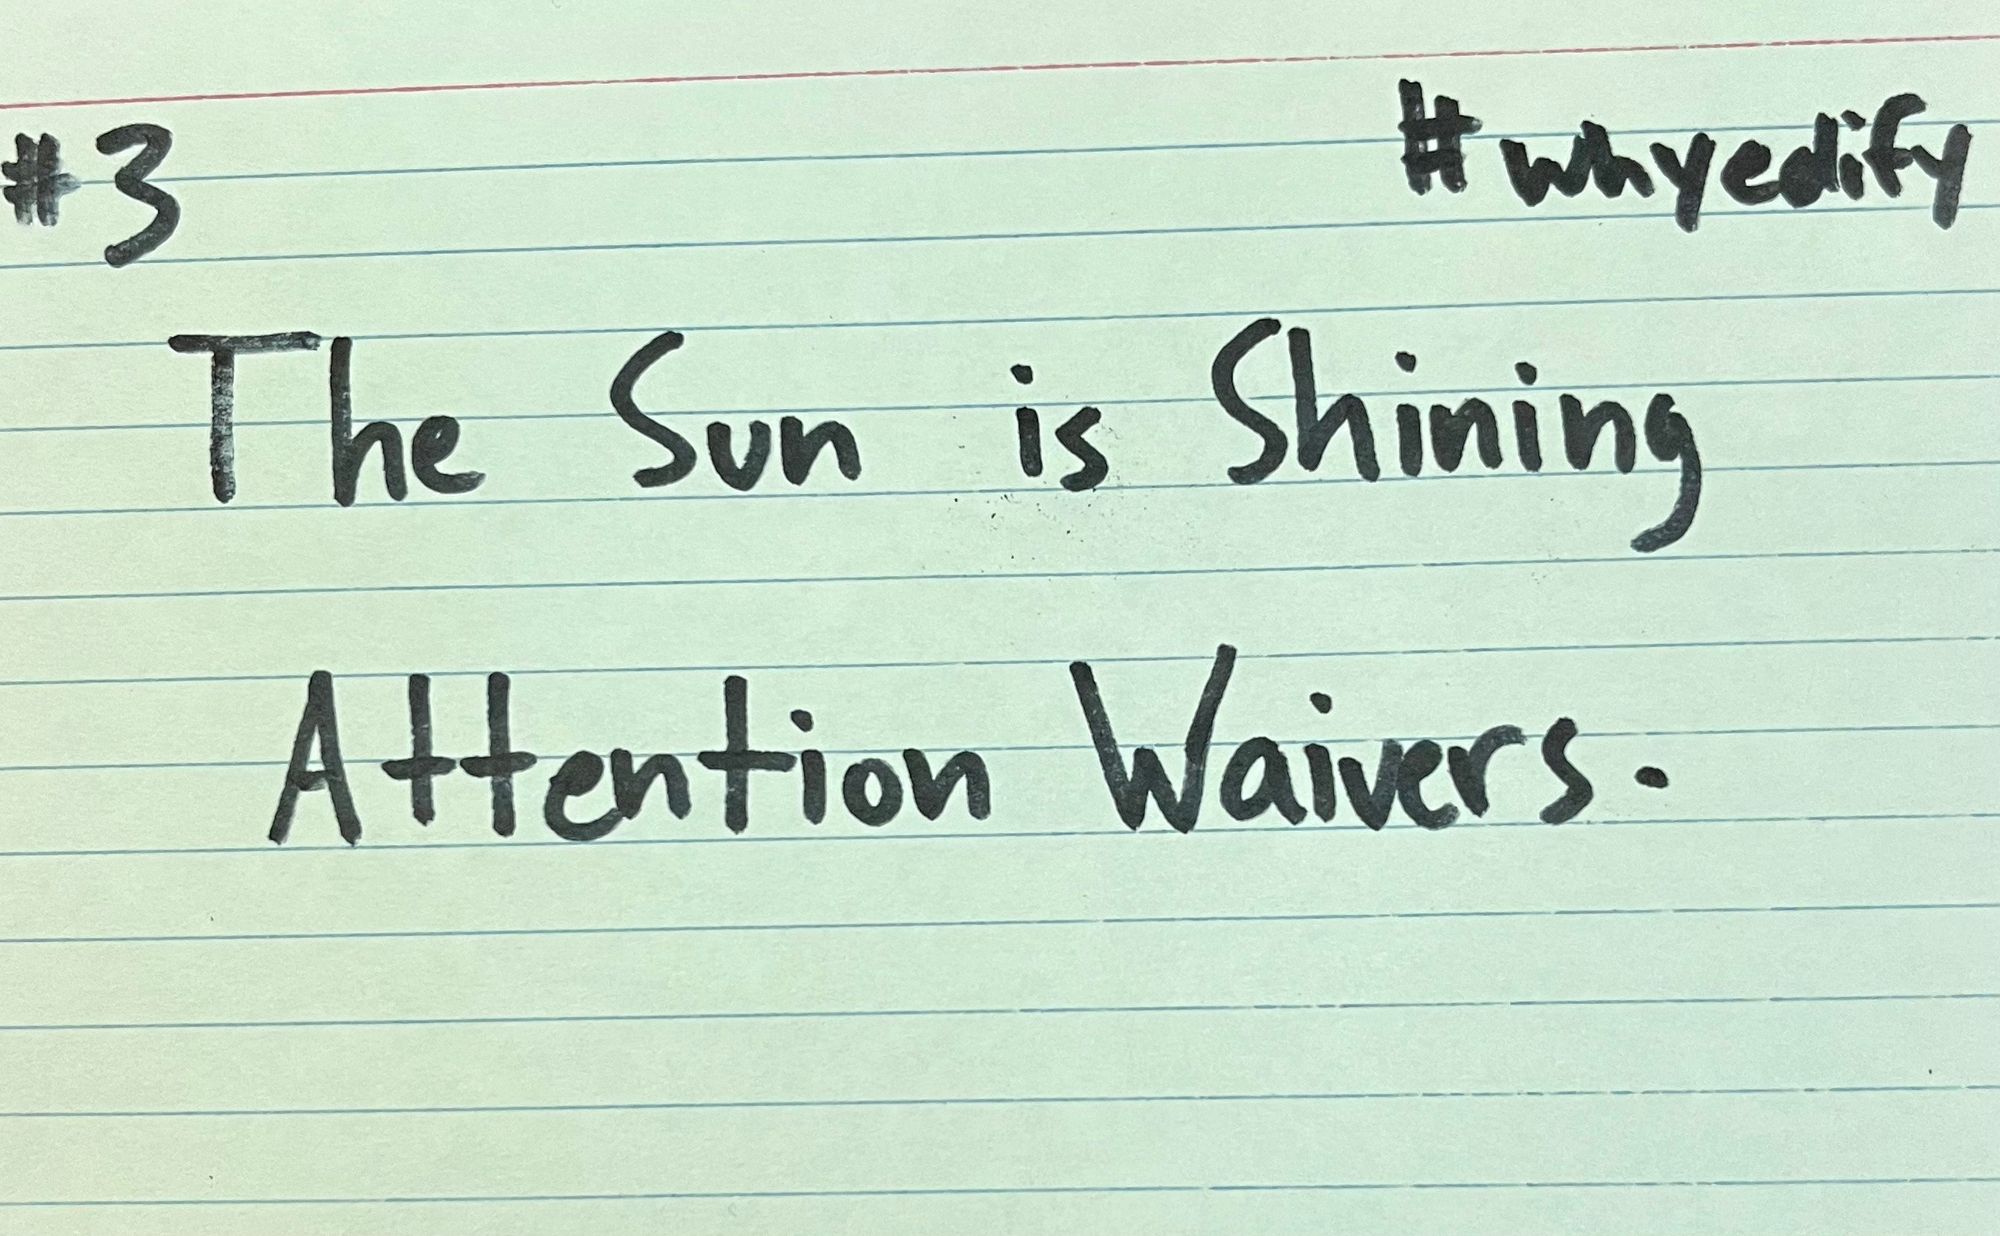 #3 #whyedify
The Sun is Shining
Attention Waivers.